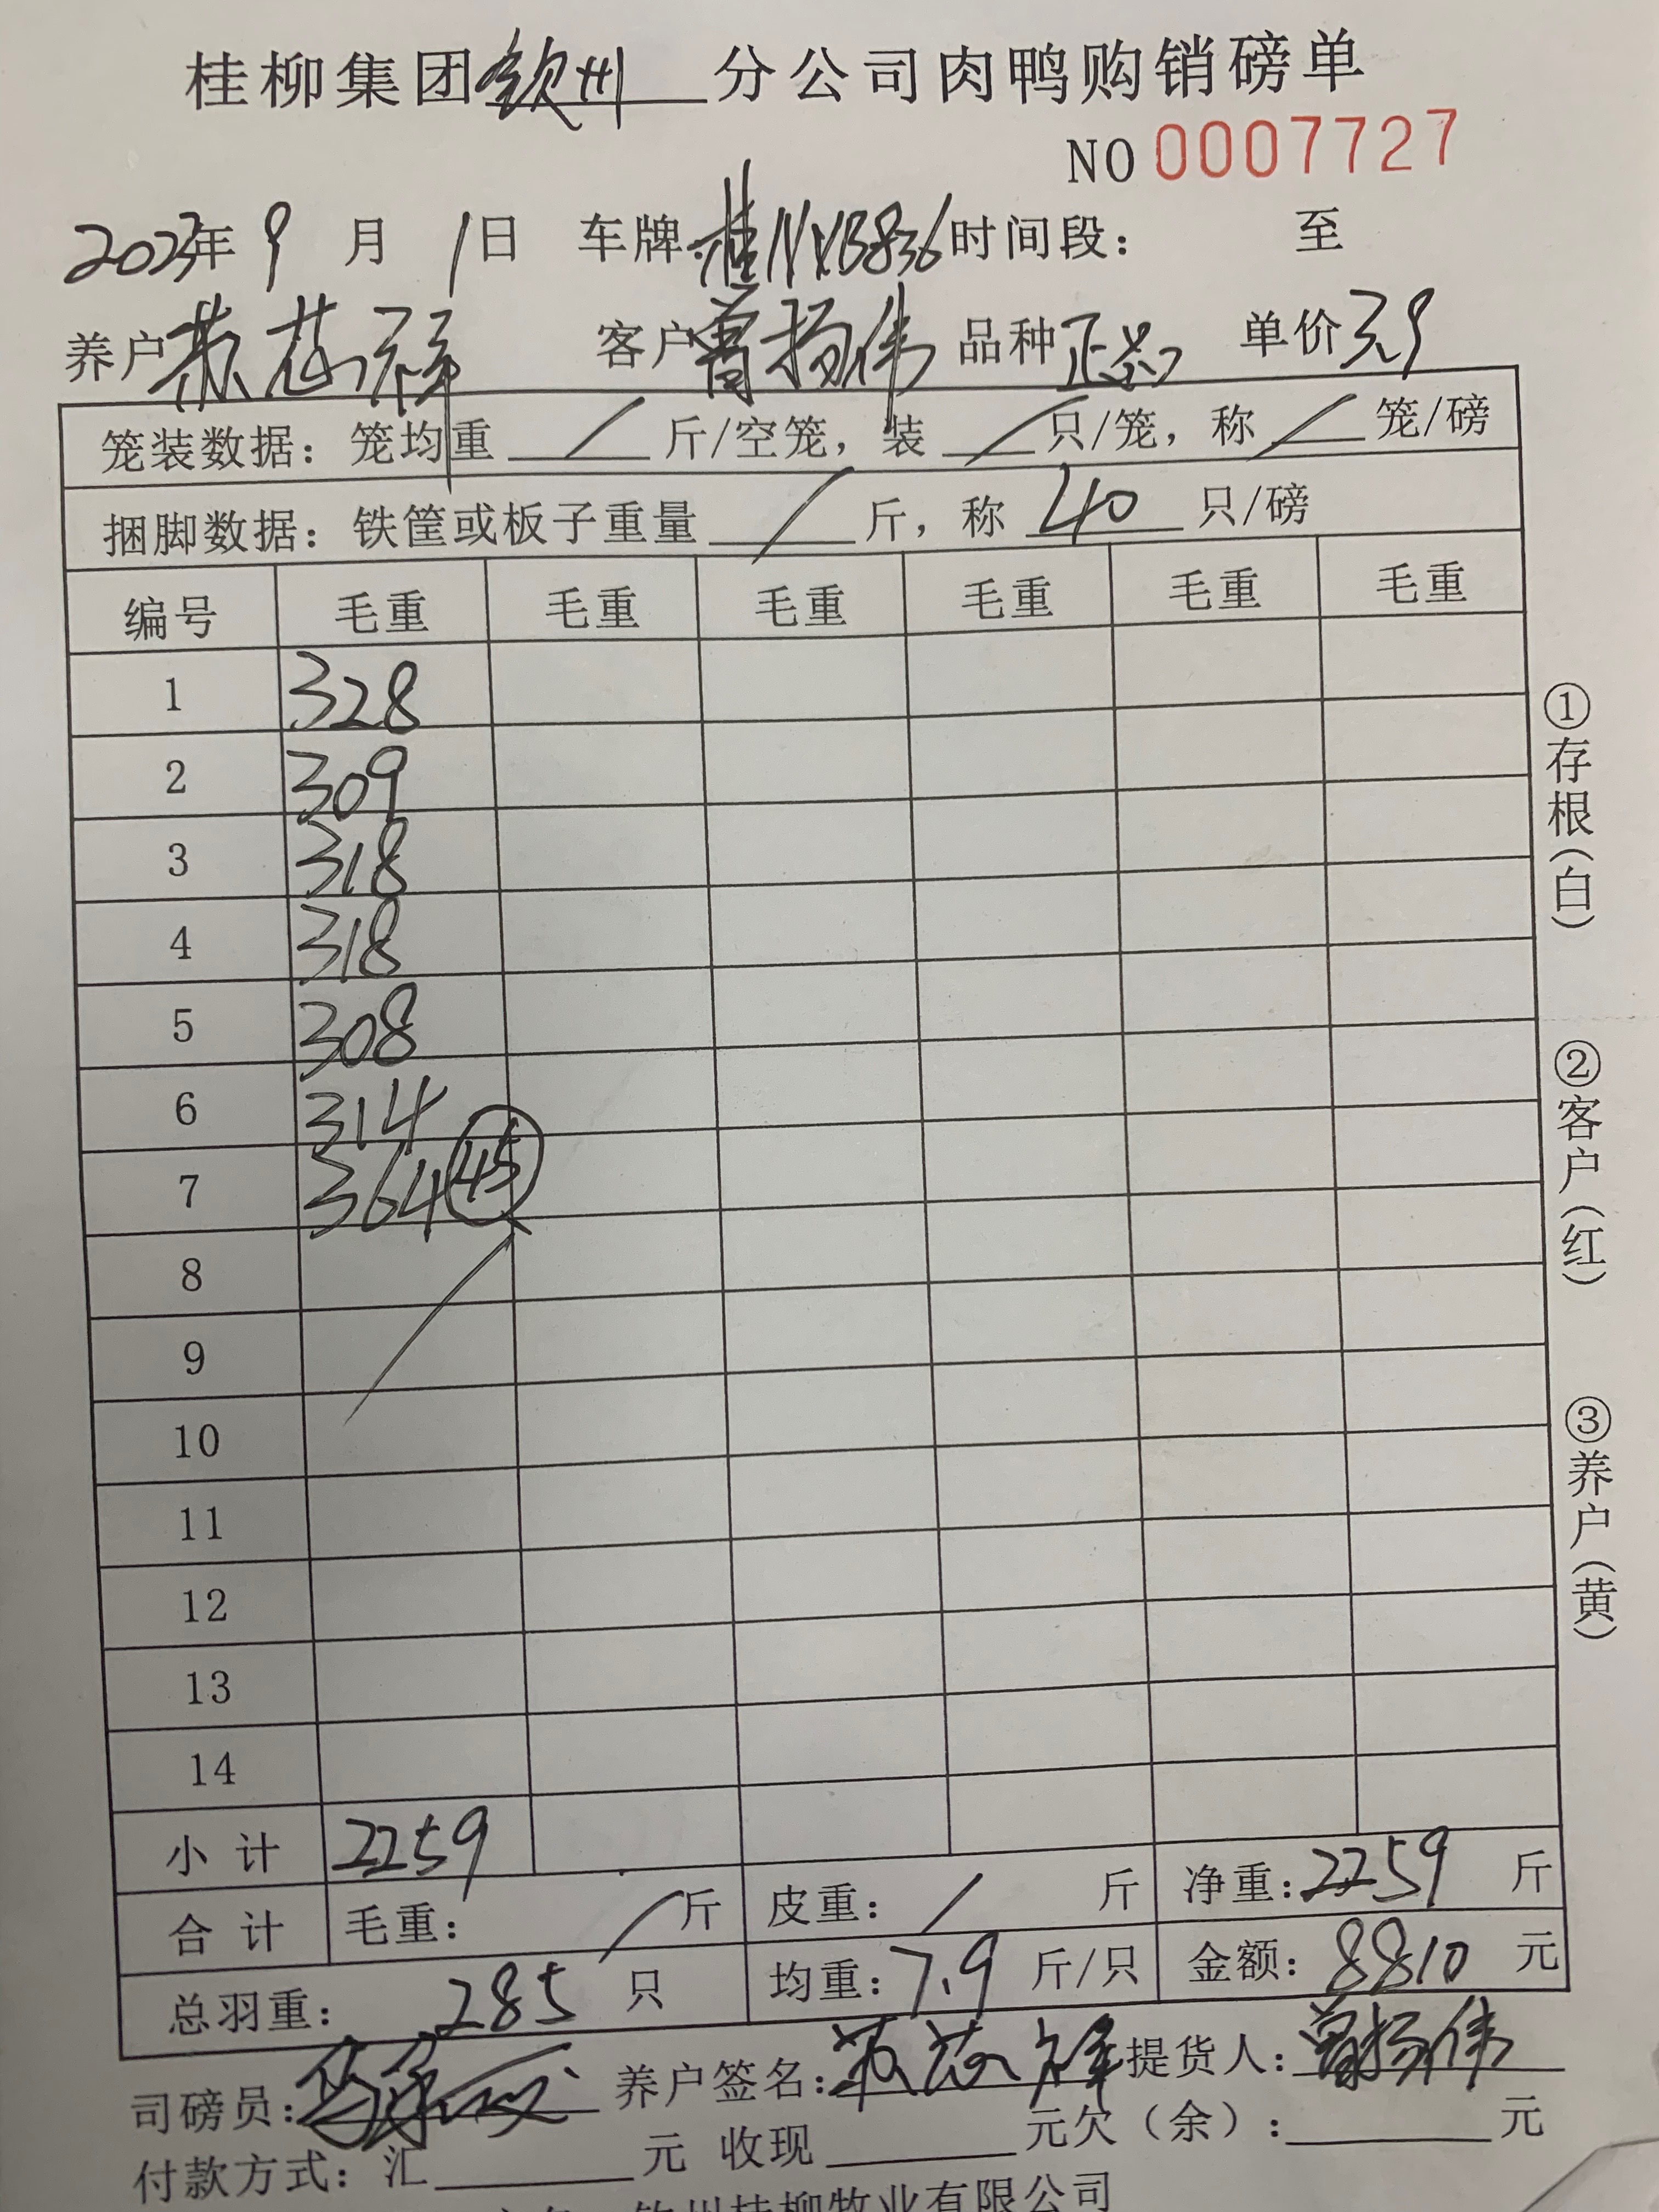 桂柳集团钦州分公司肉鸭购销磅单
NO 0007727
2023年 9 月 1日 车牌:桂NXB836 时间段: 至
养户 客户曾扬伟 品种正品 单价3.9
笼装数据：笼均重 / 斤/空笼，装 / 只/笼，称 / 笼/磅
捆脚数据：铁筐或板子重量 / 斤，称 40 只/磅
编号 毛重 毛重 毛重 毛重 毛重 毛重
1 328
2 309
3 318
4 318
5 308
6 314
7 364 45
8
9
10
11
12
13
14
小计 2259
合计 毛重： / 斤 皮重： / 斤 净重：2259 斤
总羽重： 285 只 均重：7.9 斤/只 金额：8810 元
司磅员: 养户签名: 提货人:曾扬伟
付款方式：汇 元 收现 元欠（余）: 元
钦州桂柳牧业有限公司
①存根(白)
②客户(红)
③养户(黄)